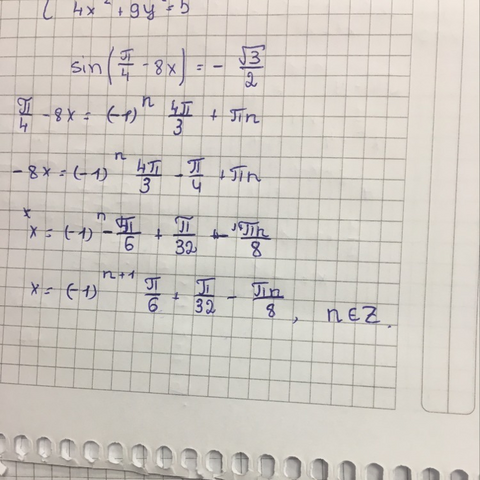 { 4x² + 9y² = 5
sin(π/4 - 8x) = - √3/2
π/4 - 8x = (-1)ⁿ 4π/3 + πn
-8x = (-1)ⁿ 4π/3 - π/4 + πn
x = (-1)ⁿ - π/6 + π/32 - πn/8
x = (-1)ⁿ⁺¹ π/6 + π/32 - πn/8, n ∈ Z.